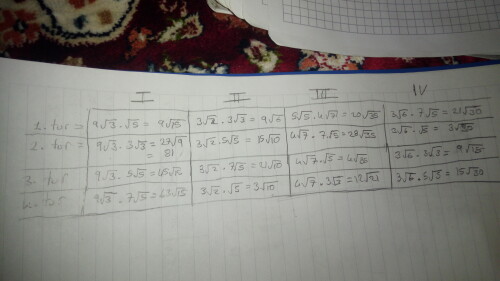 I II III IV
1. tur = 9√3 . √5 = 9√15 3√2 . 3√3 = 9√6 5√5 . 4√7 = 20√35 3√6 . 7√5 = 21√30
2. tur = 9√3 . 3√3 = 27√9 = 81 3√2 . 5√5 = 15√10 4√7 . 7√5 = 28√35
3. tur 9√3 . 5√5 = 45√15 3√2 . 7√5 = 21√10 4√7 . √5 = 4√35
4. tur 9√3 . 7√5 = 63√15 3√2 . √5 = 3√10 4√7 . 3√3 = 12√21 3√6 . 5√5 = 15√30